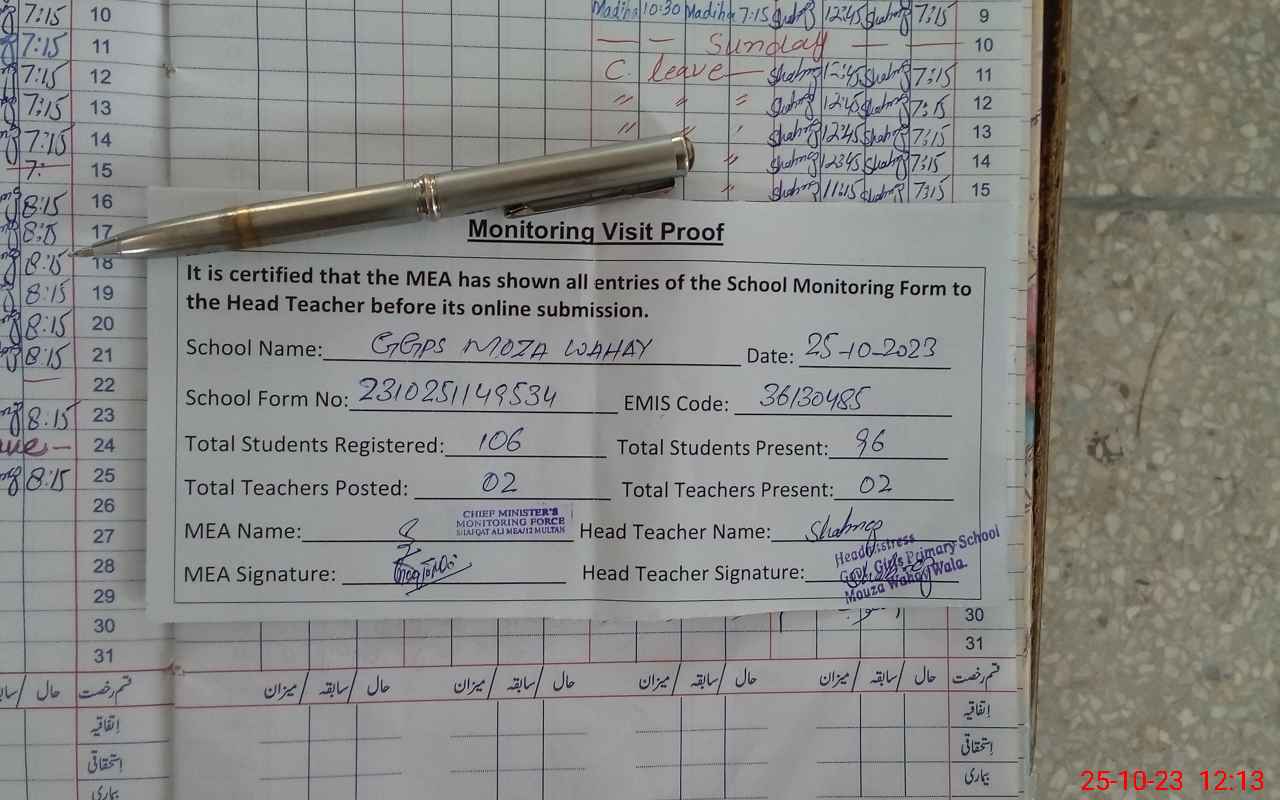 7:15 10 Madiha 10:30 Madiha 7:15 12:45 7:15 9
7:15 11 — — Sunday — — 10
7:15 12 C. leave — Shahnaz 12:45 Shahnaz 7:15 11
7:15 13 " " " Shahnaz 12:45 Shahnaz 7:15 12
7:15 14 " " Shahnaz 12:45 Shahnaz 7:15 13
7: 15 " Shahnaz 12:45 Shahnaz 7:15 14
8:15 16 " 11:15 7:15 15
8:15 17
8:15 18
8:15 19
8:15 20
8:15 21
22
8.15 23
24
8:15 25
26
27
28
29
30
31
Monitoring Visit Proof
It is certified that the MEA has shown all entries of the School Monitoring Form to
the Head Teacher before its online submission.
School Name: GGPS MOZA WAHAY Date: 25-10-2023
School Form No: 2310251149534 EMIS Code: 36130485
Total Students Registered: 106 Total Students Present: 96
Total Teachers Posted: 02 Total Teachers Present: 02
MEA Name: Head Teacher Name: Shahnaz
CHIEF MINISTER'S
MONITORING FORCE
SHAFQAT ALI MEA/12 MULTAN
MEA Signature: Head Teacher Signature:
Headmistress
Govt. Girls Primary School
Mauza Wahay Wala.
30
31
حال میزان / سابقہ / حال میزان / سابقہ / حال میزان / سابقہ / حال قسم رخصت
قسم رخصت
اتفاقیہ اتفاقیہ
استحقاقی استحقاقی
بیماری بیماری
25-10-23 12:13